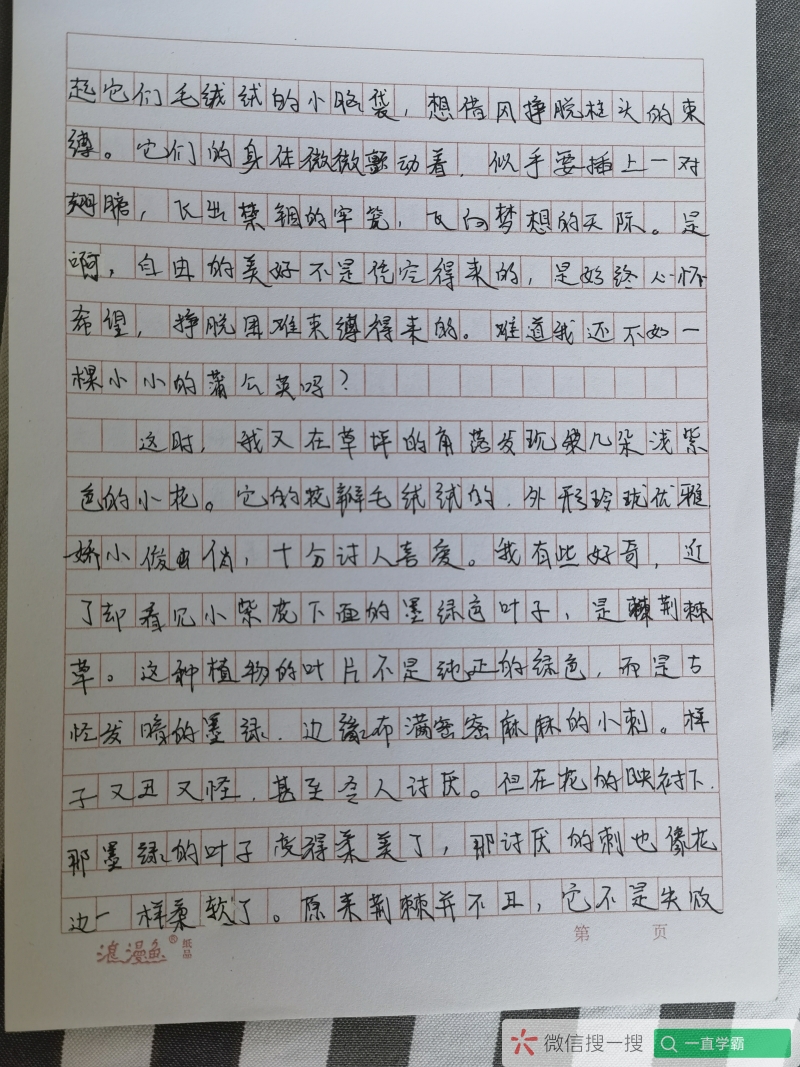 起它们毛绒绒的小脑袋，想借风挣脱枝头的束
缚。它们的身体微微颤动着，似乎要插上一对
翅膀，飞出禁锢的牢笼，飞向梦想的天际。是
啊，自由的美好不是凭空得来的，是始终心怀
希望，挣脱困难束缚得来的。难道我还不如一
棵小小的蒲公英吗？
这时，我又在草坪的角落发现几朵浅紫
色的小花。它的花瓣毛绒绒的，外形玲珑优雅
娇小俊俏，十分讨人喜爱。我有些好奇，近
了却看见小紫花下面的墨绿色叶子，是荆棘
草。这种植物的叶片不是纯正的绿色，而是古
怪发暗的墨绿，边缘布满密密麻麻的小刺。样
子又丑又怪，甚至令人讨厌。但在花的映衬下，
那墨绿的叶子变得柔美了，那讨厌的刺也像花
边一样柔软了。原来荆棘并不丑，它不是失败
浪漫鱼®
纸品
第 页
微信搜一搜
一直学霸